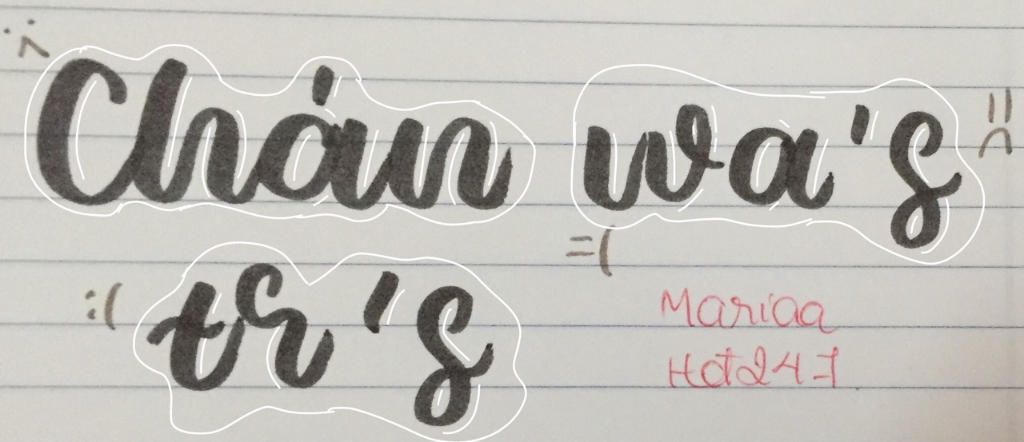 Chán wa's
=(
tr's
:(
Mariaa
Hot247